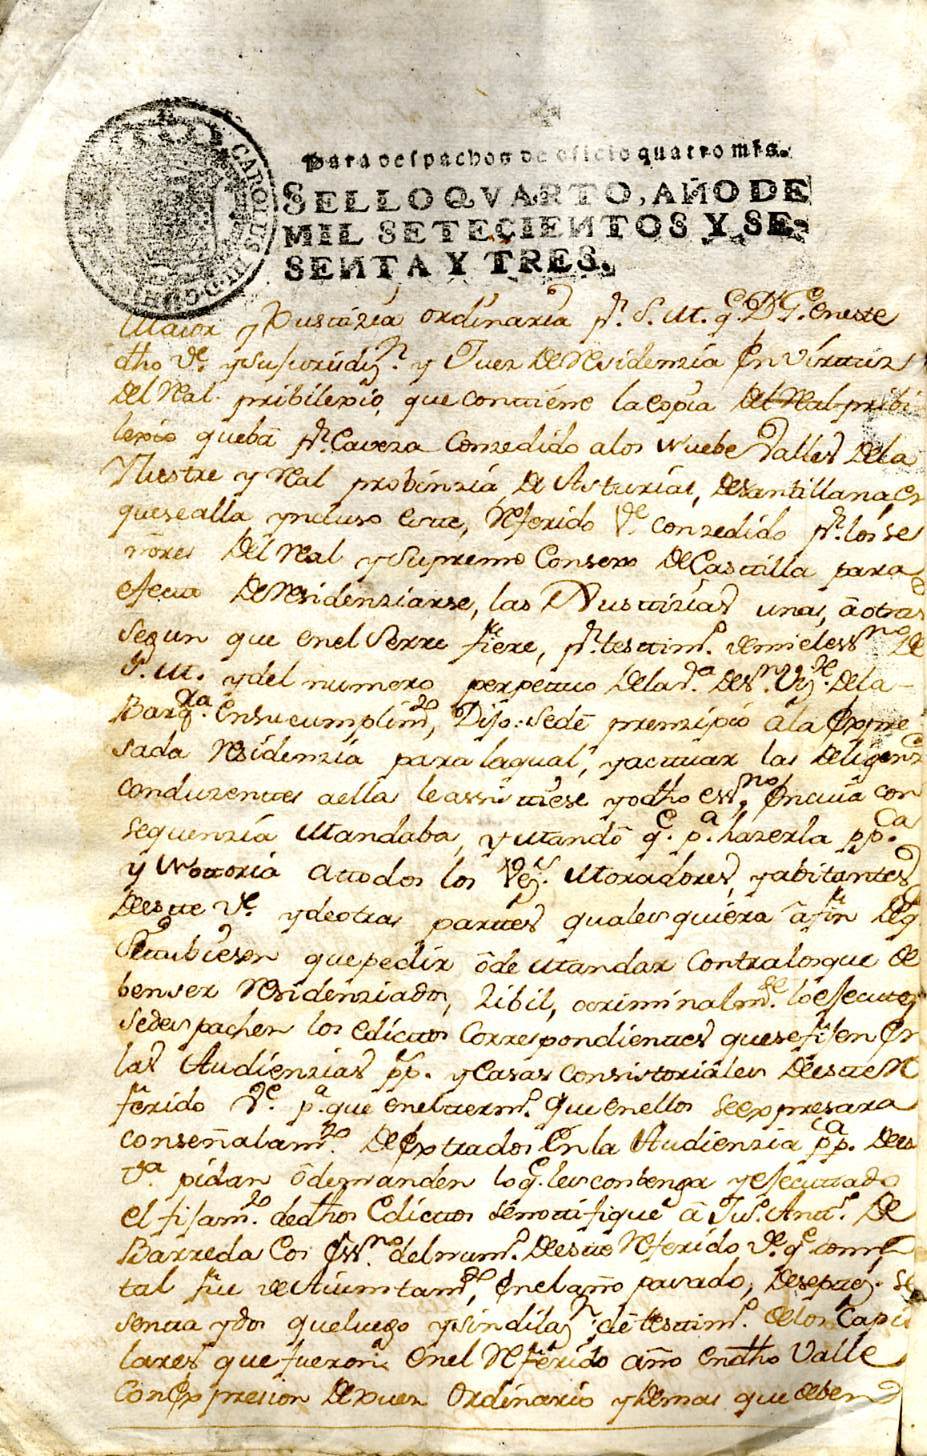 CAROLUS III D G
Para despachos de oficio quatro mrs.
SELLO QVARTO, AÑO DE
MIL SETECIENTOS Y SE-
SENTA Y TRES.
Maior y Justizia ordinaria pr. S. M. q. D. G. en este
dho Ve. y su jurisdizn. y Juez de Residenzia en virtud
del Real pribilexio, que contiene la copia del Real pribi
lexio que ba pr. Caveza Conzedido a los Nuebe Valles de la
Yllustre y Real probinzia de Asturias, de Santillana, en
que se alla yncluso este, Referido Ve. conzedido pr. los se
ñores del Real y Supremo Consexo de Castilla para
efecto de Residenziarse, las Justizias unas, a otras
segun que en el se rre fiere, pr. testim.o de mi el essno. de
S. M. y del numero perpetuo de la Va. de Sn. Vizte. de la
Barqra. En su cumplimto, Dijo: se de prenzipio â la Expre
sada Residenzia para la qual, y actuar las Deligenz
conduzentes a ella le assistiese yo dho essno, En cuia con
sequenzia Mandaba, y Mandó qe. pa. hazerla ppca
y Nottoria a ttodos los Vezs. Moradores, y abitantes
de este Ve. y de otras partes qualesquiera â fin de q.
si tubiesen que pedir ô de mandar Contra los que de
ben ser Residenziados, Zibil, o criminalmte. lo efecuten
se despachen los edictos Correspondientes que se fijen En
las Audienzias pp. y Casas Consistoriales de este Re
ferido Ve. pa. que en el term.o que en ellos se expresara
con señalamto. de Extrados En la Audienzia ppca. de es
Va. pidan ô demanden lo q. les conbenga y efecuttado
el fijamto. de dhos Edictos se nottifique â Ju.o Antt.o de
Barreda Cos Essno. del num.o de este Referido Ve. qe. como
tal fue de Aiuntamto, En el año pasado, de settez. se
senta y dos que luego y sin dilazn. de testtim.o de los Capi
lares que fueron, en el Referido año en dho Valle
Con Expresion de Juez Ordinario y demas que deben